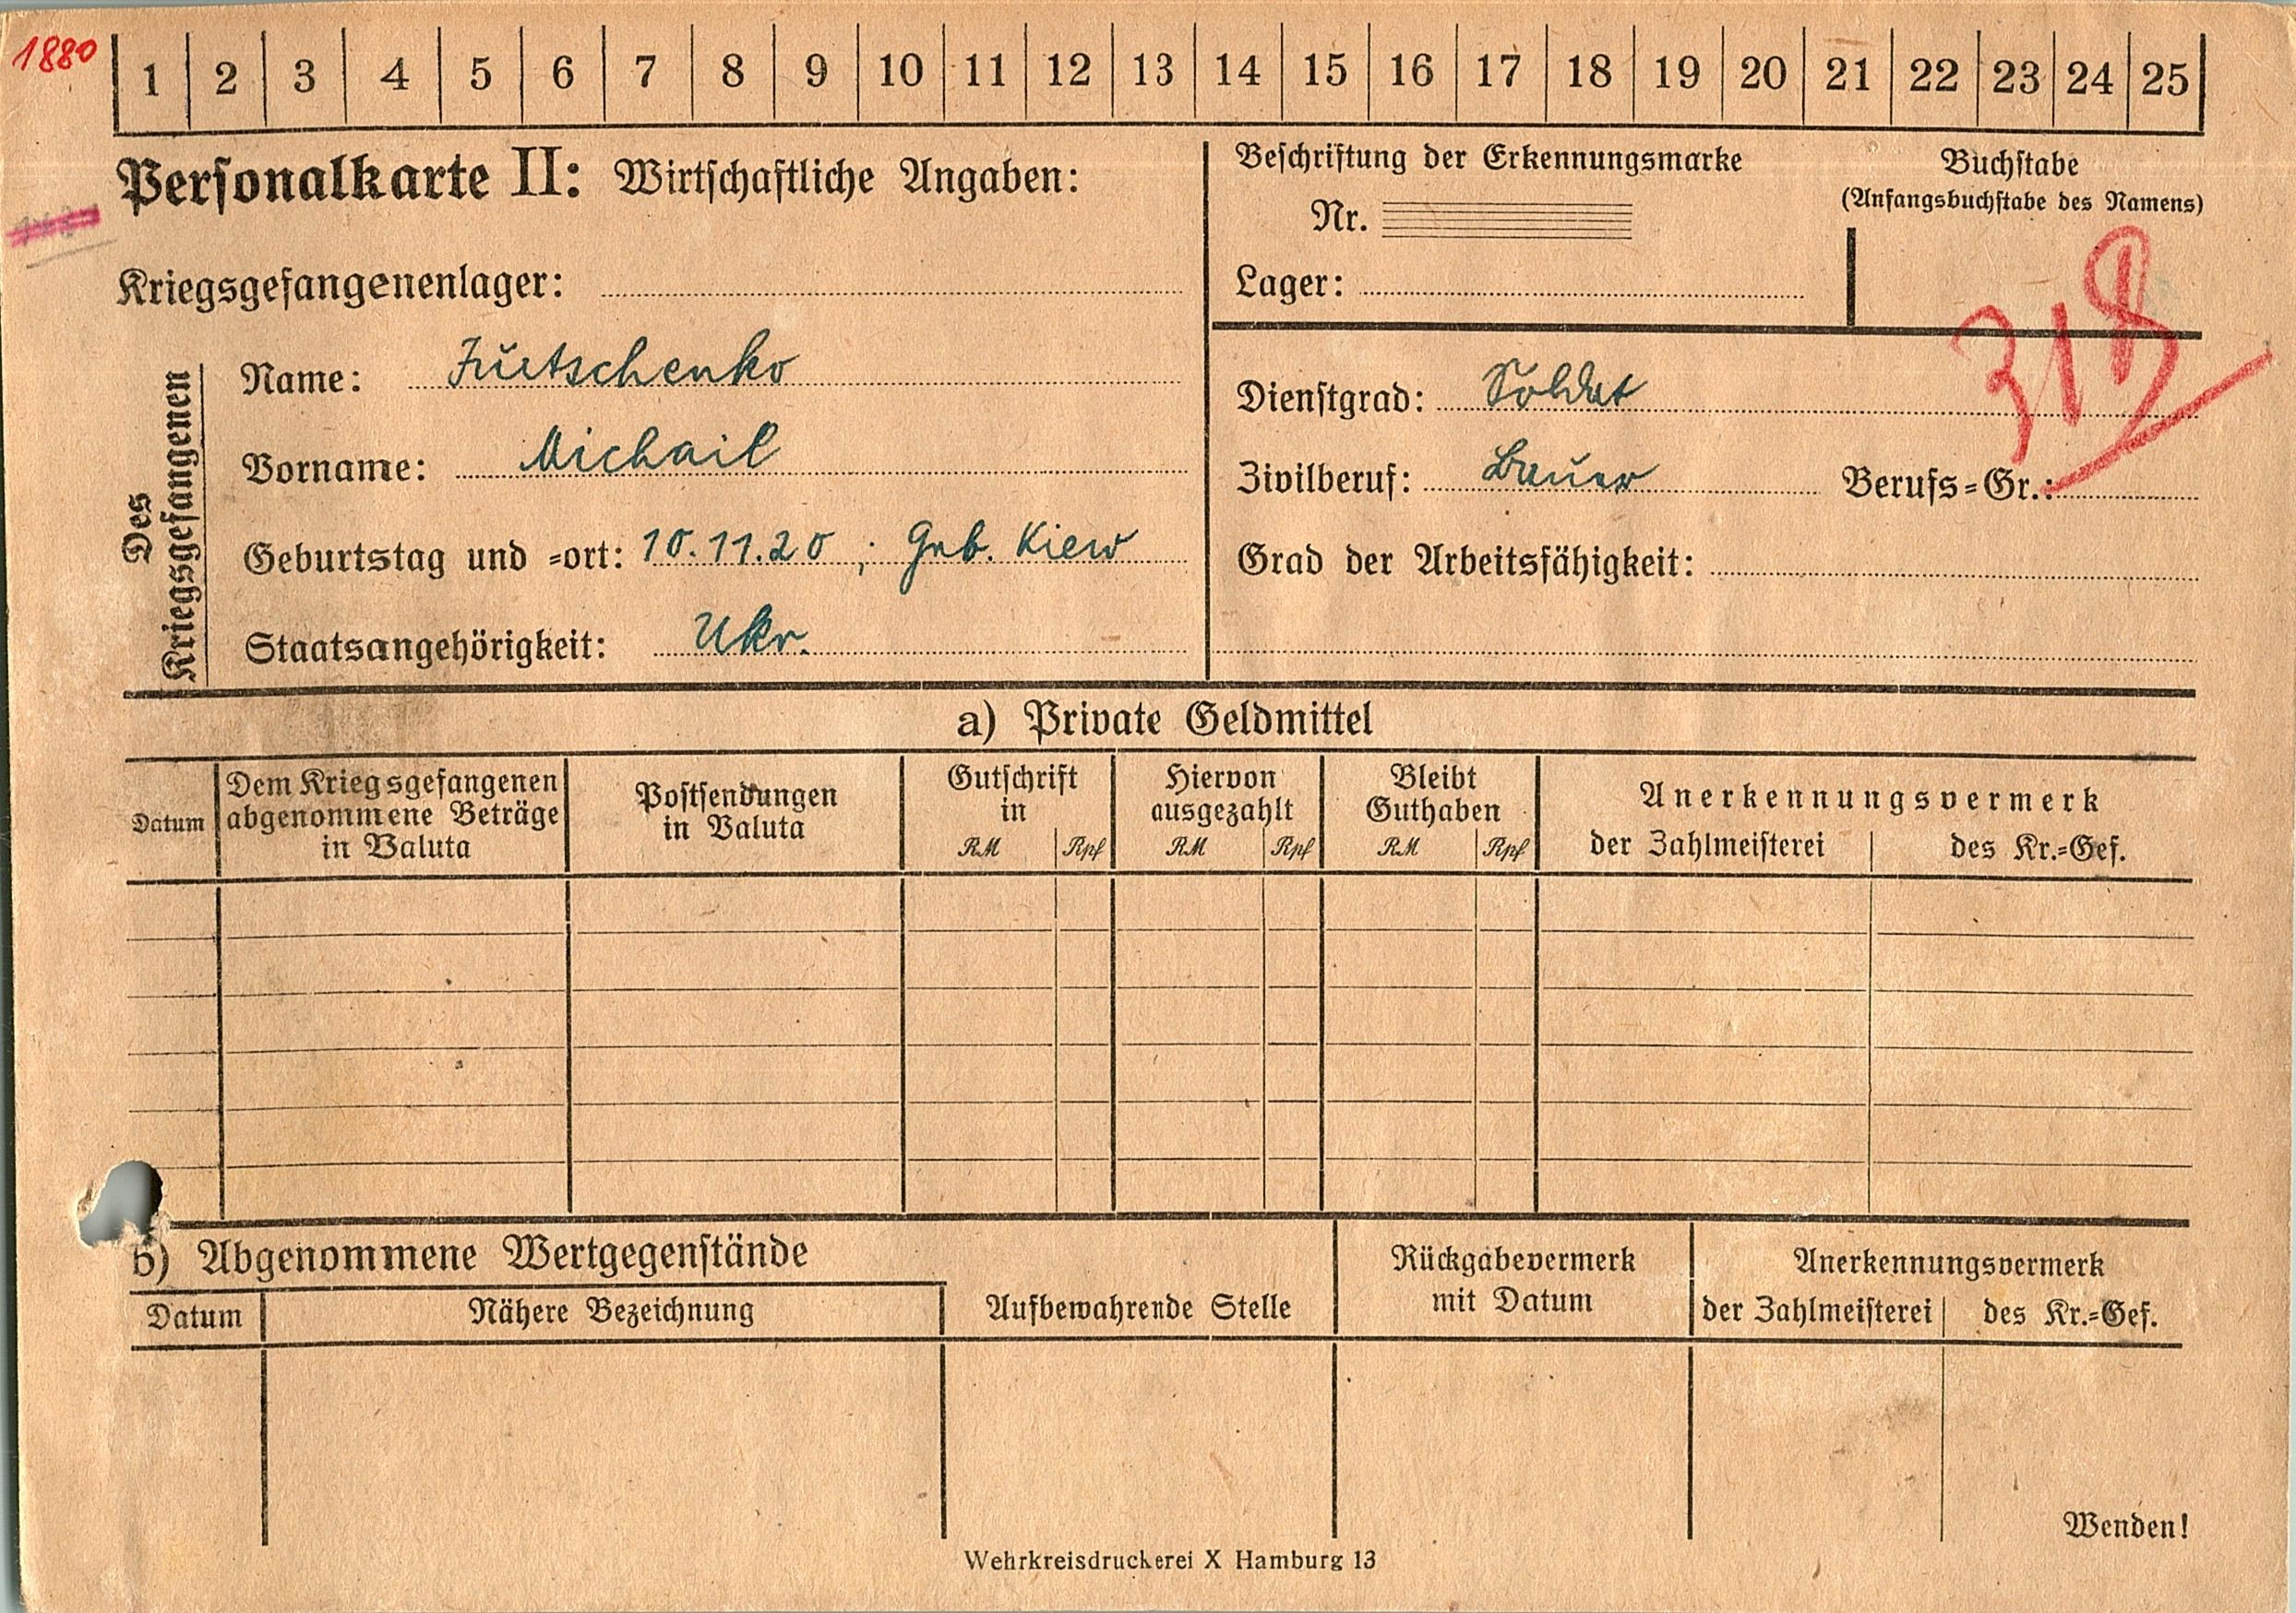 1880
1 2 3 4 5 6 7 8 9 10 11 12 13 14 15 16 17 18 19 20 21 22 23 24 25
Personalkarte II: Wirtschaftliche Angaben:
Kriegsgefangenenlager:
Beschriftung der Erkennungsmarke
Nr.
Lager:
Buchstabe
(Anfangsbuchstabe des Namens)
Des
Kriegsgefangenen
Name:
Vorname: Michail
Geburtstag und =ort: 10.11.20 ; Geb. Kiew
Staatsangehörigkeit: Ukr.
Dienstgrad: Soldat
Zivilberuf: Bauer Berufs=Gr.:
Grad der Arbeitsfähigkeit:
a) Private Geldmittel
Datum
Dem Kriegsgefangenen
abgenommene Beträge
in Valuta
Postsendungen
in Valuta
Gutschrift
in
RM Rpf
Hiervon
ausgezahlt
RM Rpf
Bleibt
Guthaben
RM Rpf
Anerkennungsvermerk
der Zahlmeisterei des Kr.=Gef.
b) Abgenommene Wertgegenstände
Datum Nähere Bezeichnung
Aufbewahrende Stelle
Rückgabevermerk
mit Datum
Anerkennungsvermerk
der Zahlmeisterei des Kr.=Gef.
Wenden!
Wehrkreisdruckerei X Hamburg 13